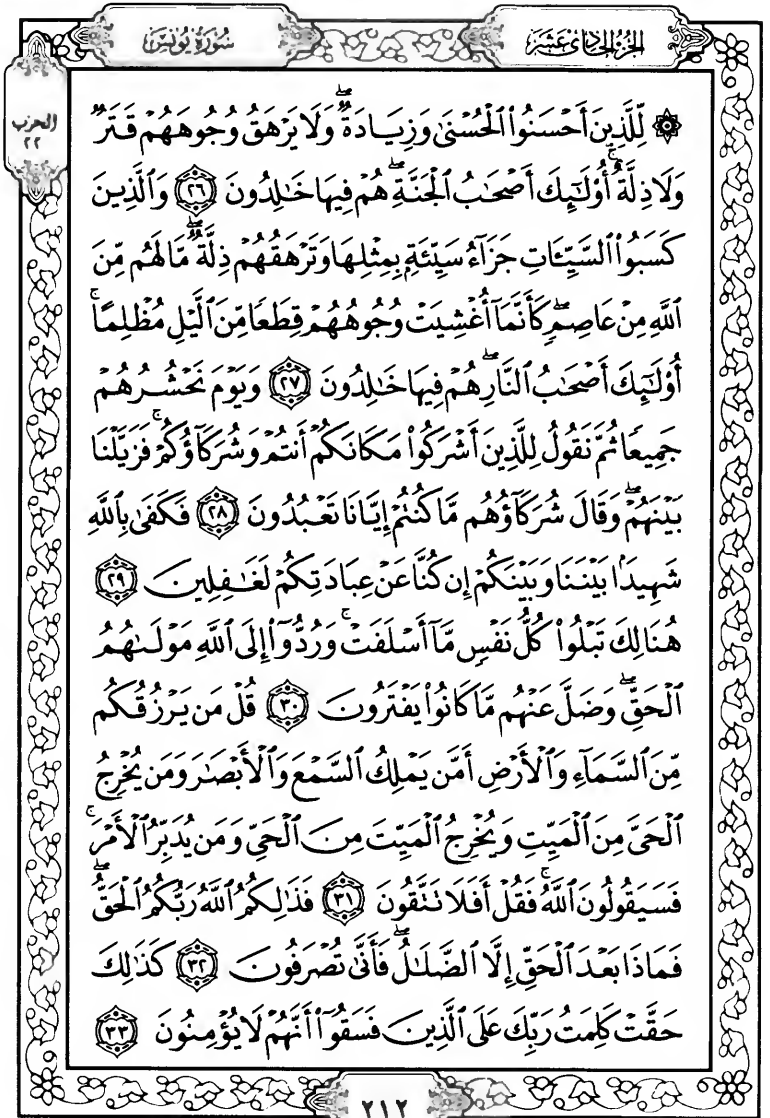 الجزء الحادي عشر
سورة يونس
الحزب
٢٢
۞ لِّلَّذِينَ أَحْسَنُوا۟ ٱلْحُسْنَىٰ وَزِيَادَةٌۖ وَلَا يَرْهَقُ وُجُوهَهُمْ قَتَرٌ
وَلَا ذِلَّةٌۚ أُو۟لَٰٓئِكَ أَصْحَٰبُ ٱلْجَنَّةِۖ هُمْ فِيهَا خَٰلِدُونَ ٢٦ وَٱلَّذِينَ
كَسَبُوا۟ ٱلسَّيِّـَٔاتِ جَزَآءُ سَيِّئَةٍۭ بِمِثْلِهَا وَتَرْهَقُهُمْ ذِلَّةٌۖ مَّا لَهُم مِّنَ
ٱللَّهِ مِنْ عَاصِمٍۖ كَأَنَّمَآ أُغْشِيَتْ وُجُوهُهُمْ قِطَعًا مِّنَ ٱلَّيْلِ مُظْلِمًاۚ
أُو۟لَٰٓئِكَ أَصْحَٰبُ ٱلنَّارِۖ هُمْ فِيهَا خَٰلِدُونَ ٢٧ وَيَوْمَ نَحْشُرُهُمْ
جَمِيعًا ثُمَّ نَقُولُ لِلَّذِينَ أَشْرَكُوا۟ مَكَانَكُمْ أَنتُمْ وَشُرَكَآؤُكُمْۚ فَزَيَّلْنَا
بَيْنَهُمْۖ وَقَالَ شُرَكَآؤُهُم مَّا كُنتُمْ إِيَّانَا تَعْبُدُونَ ٢٨ فَكَفَىٰ بِٱللَّهِ
شَهِيدًۢا بَيْنَنَا وَبَيْنَكُمْ إِن كُنَّا عَنْ عِبَادَتِكُمْ لَغَٰفِلِينَ ٢٩
هُنَالِكَ تَبْلُوا۟ كُلُّ نَفْسٍ مَّآ أَسْلَفَتْۚ وَرُدُّوٓا۟ إِلَى ٱللَّهِ مَوْلَىٰهُمُ
ٱلْحَقِّۖ وَضَلَّ عَنْهُم مَّا كَانُوا۟ يَفْتَرُونَ ٣٠ قُلْ مَن يَرْزُقُكُم
مِّنَ ٱلسَّمَآءِ وَٱلْأَرْضِ أَمَّن يَمْلِكُ ٱلسَّمْعَ وَٱلْأَبْصَٰرَ وَمَن يُخْرِجُ
ٱلْحَىَّ مِنَ ٱلْمَيِّتِ وَيُخْرِجُ ٱلْمَيِّتَ مِنَ ٱلْحَىِّ وَمَن يُدَبِّرُ ٱلْأَمْرَۚ
فَسَيَقُولُونَ ٱللَّهُۚ فَقُلْ أَفَلَا تَتَّقُونَ ٣١ فَذَٰلِكُمُ ٱللَّهُ رَبُّكُمُ ٱلْحَقُّۖ
فَمَاذَا بَعْدَ ٱلْحَقِّ إِلَّا ٱلضَّلَٰلُۖ فَأَنَّىٰ تُصْرَفُونَ ٣٢ كَذَٰلِكَ
حَقَّتْ كَلِمَتُ رَبِّكَ عَلَى ٱلَّذِينَ فَسَقُوٓا۟ أَنَّهُمْ لَا يُؤْمِنُونَ ٣٣
٢١٢